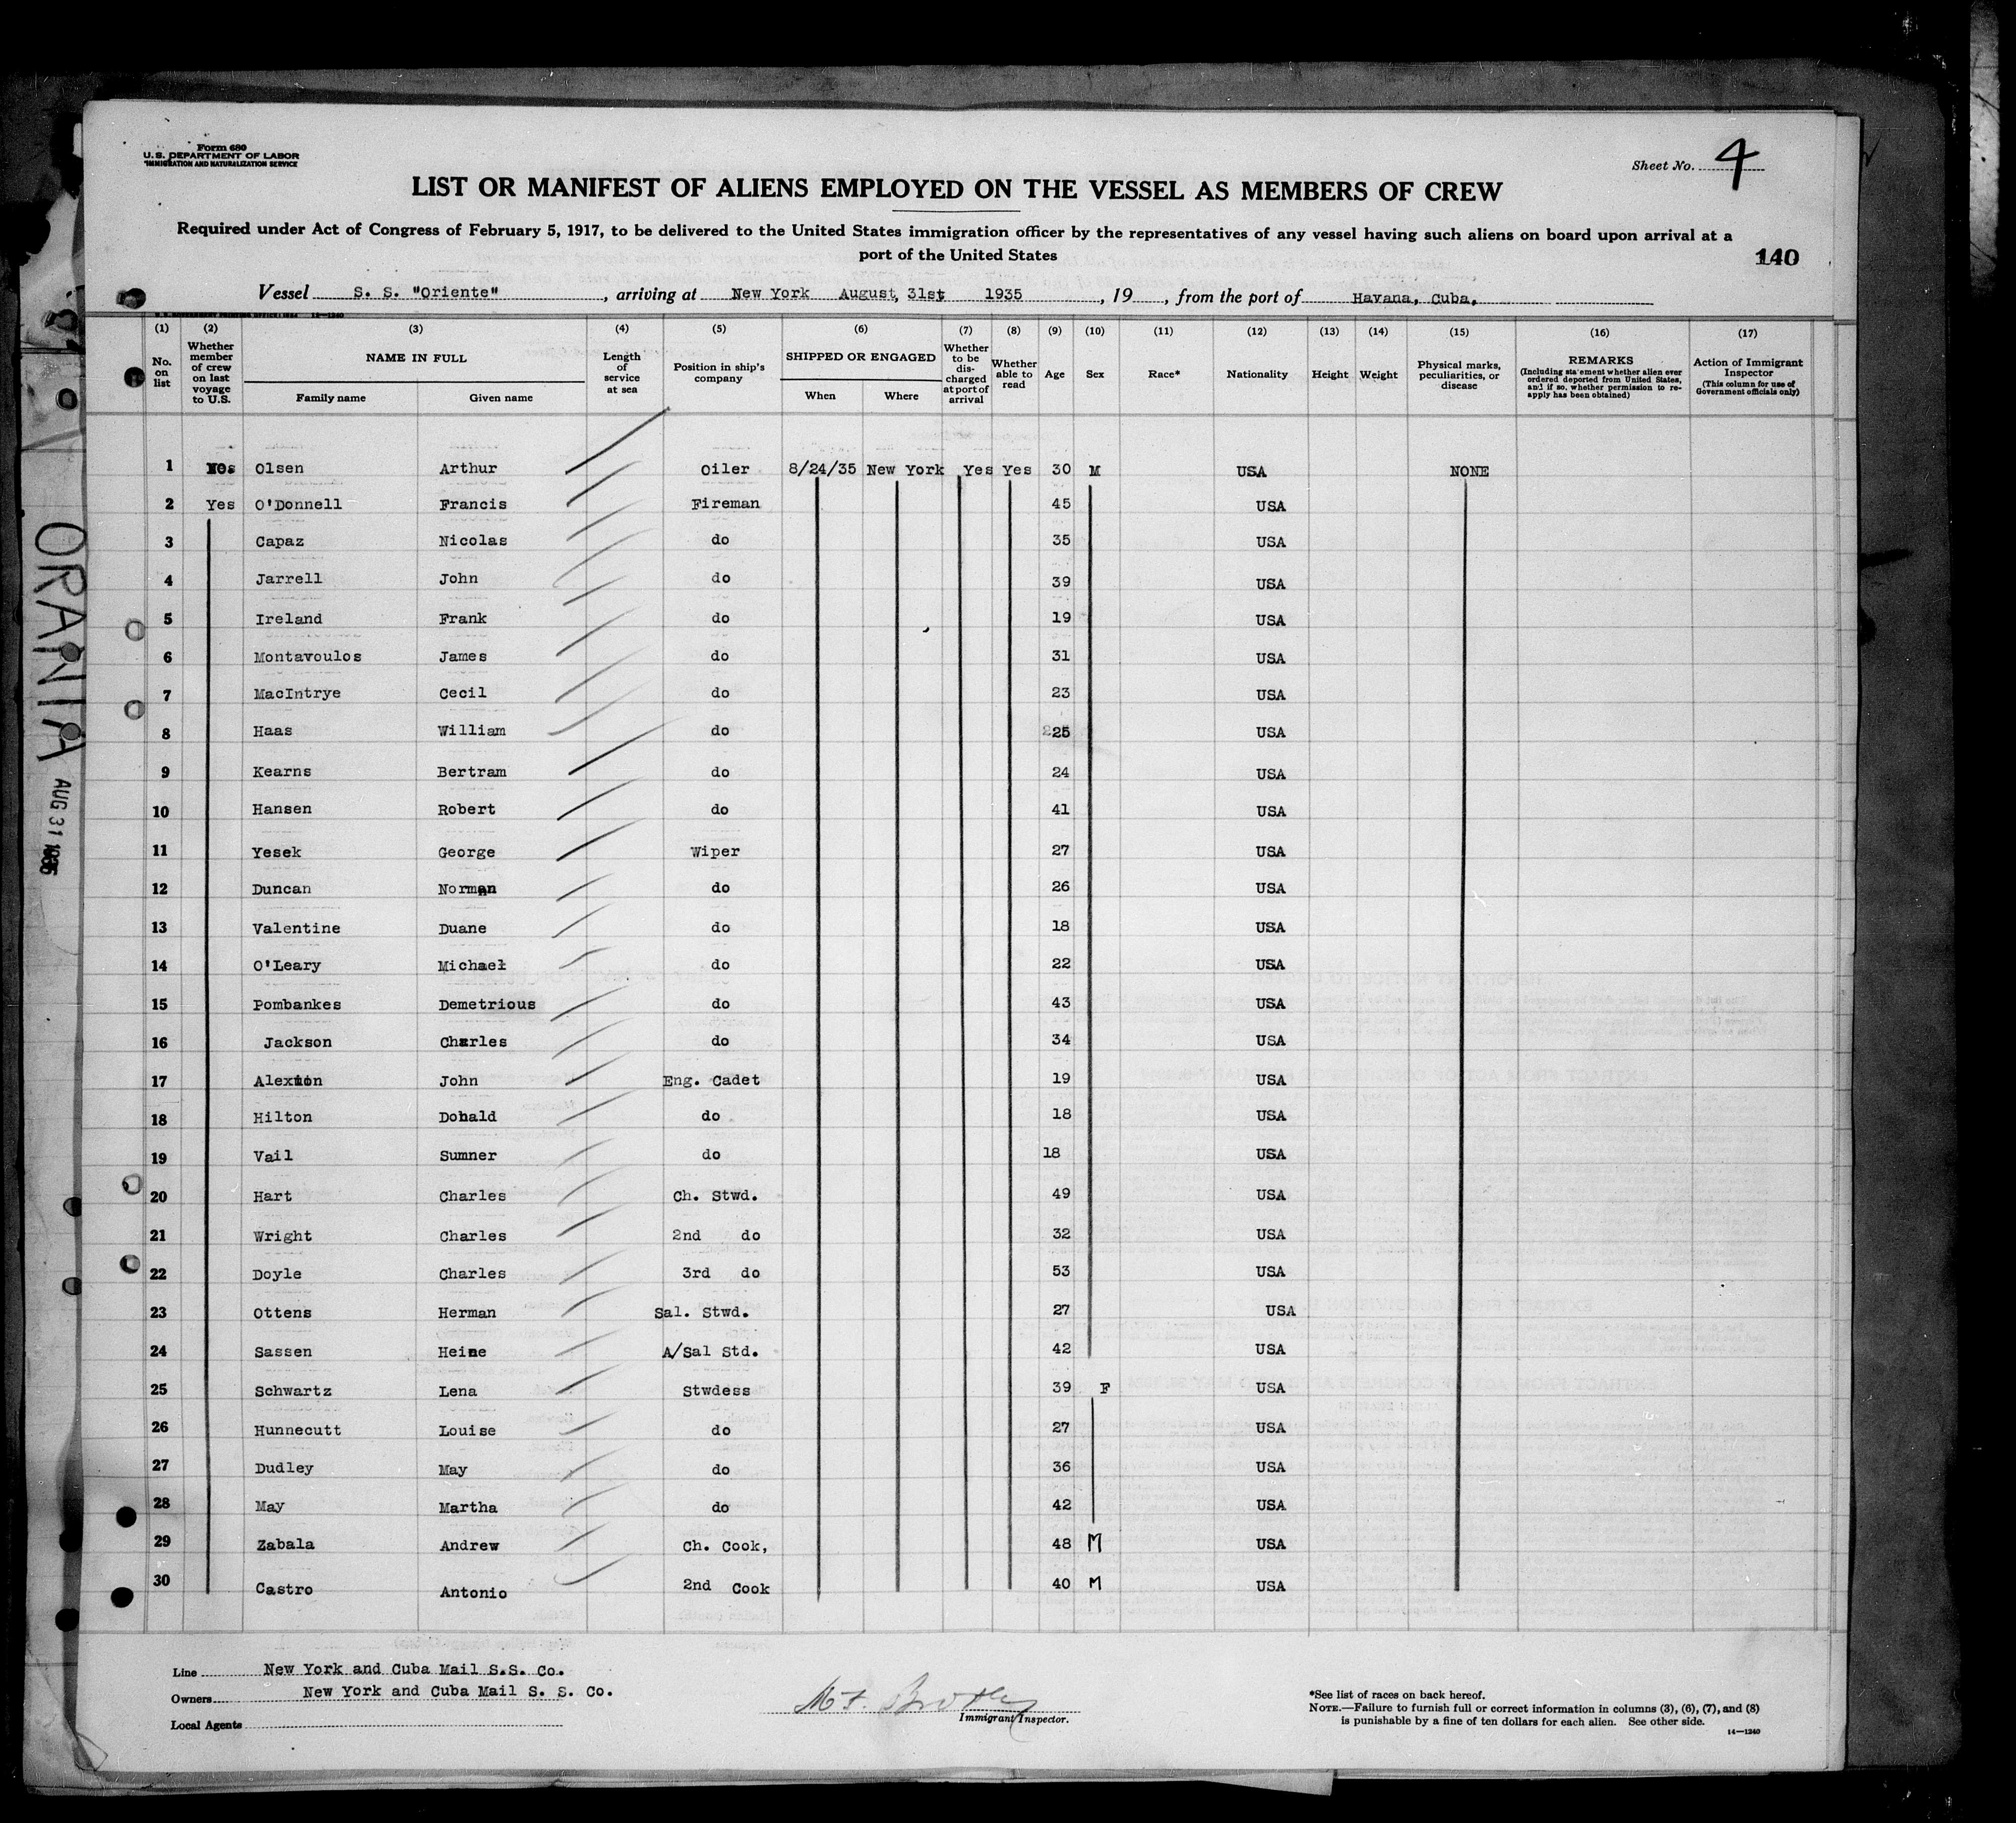 Form 680
U. S. DEPARTMENT OF LABOR
IMMIGRATION AND NATURALIZATION SERVICE
Sheet No. 4
LIST OR MANIFEST OF ALIENS EMPLOYED ON THE VESSEL AS MEMBERS OF CREW
Required under Act of Congress of February 5, 1917, to be delivered to the United States immigration officer by the representatives of any vessel having such aliens on board upon arrival at a
port of the United States
140
Vessel S. S. "Oriente" , arriving at New York August, 31st 1935 , 19 , from the port of Havana, Cuba,
(1) (2) (3) (4) (5) (6) (7) (8) (9) (10) (11) (12) (13) (14) (15) (16) (17)
No. on list
Whether member of crew on last voyage to U.S.
NAME IN FULL
Family name Given name
Length of service at sea
Position in ship's company
SHIPPED OR ENGAGED
When Where
Whether to be discharged at port of arrival
Whether able to read
Age
Sex
Race*
Nationality
Height
Weight
Physical marks, peculiarities, or disease
REMARKS
(Including statement whether alien ever ordered deported from United States, and if so, whether permission to re-apply has been obtained)
Action of Immigrant Inspector
(This column for use of Government officials only)
1 Olsen Arthur Oiler 8/24/35 New York Yes Yes 30 M USA NONE
2 Yes O'Donnell Francis Fireman 45 USA
3 Capaz Nicolas do 35 USA
4 Jarrell John do 39 USA
5 Ireland Frank do 19 USA
6 Montavoulos James do 31 USA
7 MacIntrye Cecil do 23 USA
8 Haas William do 25 USA
9 Kearns Bertram do 24 USA
10 Hansen Robert do 41 USA
11 Yesek George Wiper 27 USA
12 Duncan Norman do 26 USA
13 Valentine Duane do 18 USA
14 O'Leary Michael do 22 USA
15 Pombankes Demetrious do 43 USA
16 Jackson Charles do 34 USA
17 John Eng. Cadet 19 USA
18 Hilton Donald do 18 USA
19 Vail Sumner do 18 USA
20 Hart Charles Ch. Stwd. 49 USA
21 Wright Charles 2nd do 32 USA
22 Doyle Charles 3rd do 53 USA
23 Ottens Herman Sal. Stwd. 27 USA
24 Sassen Heine A/Sal Std. 42 USA
25 Schwartz Lena Stwdess 39 F USA
26 Hunnecutt Louise do 27 USA
27 Dudley May do 36 USA
28 May Martha do 42 USA
29 Zabala Andrew Ch. Cook, 48 M USA
30 Castro Antonio 2nd Cook 40 M USA
Line New York and Cuba Mail S.S. Co.
Owners New York and Cuba Mail S. S. Co.
Local Agents
Immigrant Inspector.
*See list of races on back hereof.
NOTE.—Failure to furnish full or correct information in columns (3), (6), (7), and (8)
is punishable by a fine of ten dollars for each alien. See other side.
14—1240
ORANIA
AUG 31 1935